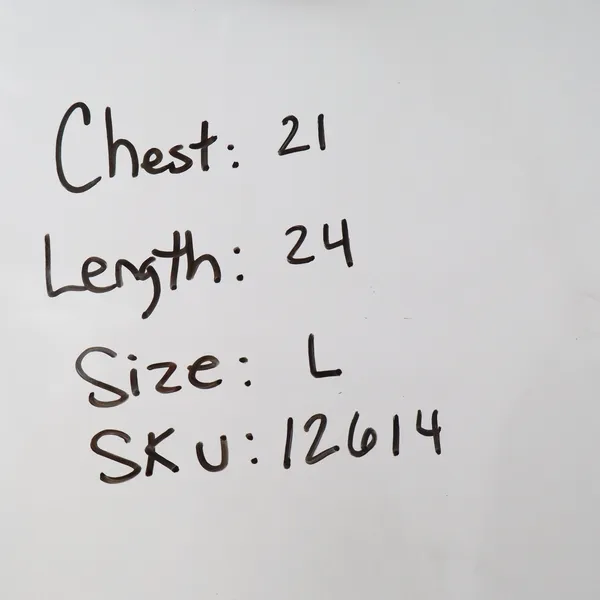 Chest: 21
Length: 24
Size: L
SKU: 12614